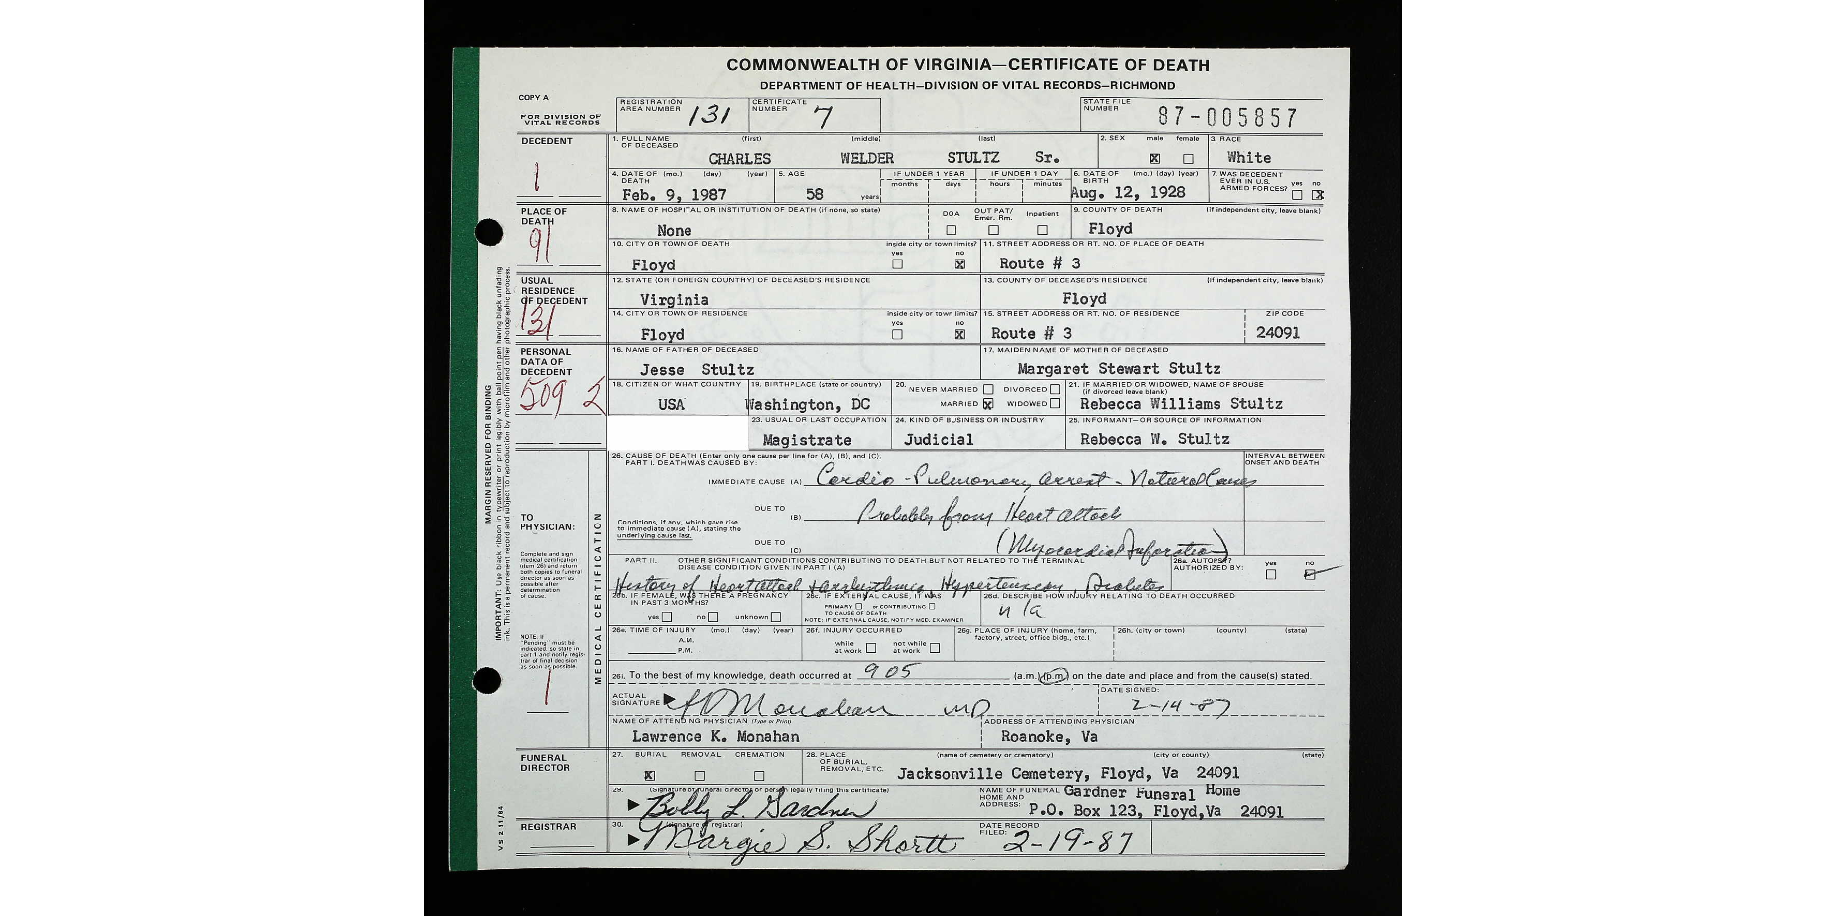 COMMONWEALTH OF VIRGINIA—CERTIFICATE OF DEATH
DEPARTMENT OF HEALTH—DIVISION OF VITAL RECORDS—RICHMOND
COPY A
FOR DIVISION OF VITAL RECORDS
REGISTRATION AREA NUMBER 131
CERTIFICATE NUMBER 7
STATE FILE NUMBER 87-005857
DECEDENT
1
1. FULL NAME OF DECEASED (first) (middle) (last)
CHARLES WELDER STULTZ Sr.
2. SEX male female
☒ ☐
3. RACE
White
4. DATE OF DEATH (mo.) (day) (year)
Feb. 9, 1987
5. AGE
58 years
IF UNDER 1 YEAR months days
IF UNDER 1 DAY hours minutes
6. DATE OF BIRTH (mo.) (day) (year)
Aug. 12, 1928
7. WAS DECEDENT EVER IN U.S. ARMED FORCES? yes ☐ no ☒
PLACE OF DEATH
91
8. NAME OF HOSPITAL OR INSTITUTION OF DEATH (if none, so state)
None
DOA ☐ OUT PAT/ Emer. Rm. ☐ Inpatient ☐
9. COUNTY OF DEATH (if independent city, leave blank)
Floyd
10. CITY OR TOWN OF DEATH
Floyd
inside city or town limits? yes ☐ no ☒
11. STREET ADDRESS OR RT. NO. OF PLACE OF DEATH
Route # 3
USUAL RESIDENCE OF DECEDENT
131
12. STATE (OR FOREIGN COUNTRY) OF DECEASED'S RESIDENCE
Virginia
13. COUNTY OF DECEASED'S RESIDENCE (if independent city, leave blank)
Floyd
14. CITY OR TOWN OF RESIDENCE
Floyd
inside city or town limits? yes ☐ no ☒
15. STREET ADDRESS OR RT. NO. OF RESIDENCE
Route # 3
ZIP CODE
24091
PERSONAL DATA OF DECEDENT
509 2
16. NAME OF FATHER OF DECEASED
Jesse Stultz
17. MAIDEN NAME OF MOTHER OF DECEASED
Margaret Stewart Stultz
18. CITIZEN OF WHAT COUNTRY
USA
19. BIRTHPLACE (state or country)
Washington, DC
20. NEVER MARRIED ☐ DIVORCED ☐
MARRIED ☒ WIDOWED ☐
21. IF MARRIED OR WIDOWED, NAME OF SPOUSE (if divorced leave blank)
Rebecca Williams Stultz
23. USUAL OR LAST OCCUPATION
Magistrate
24. KIND OF BUSINESS OR INDUSTRY
Judicial
25. INFORMANT—OR SOURCE OF INFORMATION
Rebecca W. Stultz
MARGIN RESERVED FOR BINDING
IMPORTANT: Use black ribbon in typewriter or print legibly with ball point pen having black unfading
ink. This is a permanent record and subject to reproduction by microfilm and other photographic process.
TO PHYSICIAN:
Complete and sign medical certification (item 26) and return both copies to funeral director as soon as possible after determination of cause.
NOTE: If "Pending" must be indicated, so state in part I and notify registrar of final decision as soon as possible.
1
MEDICAL CERTIFICATION
26. CAUSE OF DEATH (Enter only one cause per line for (A), (B), and (C).
PART I. DEATH WAS CAUSED BY:
INTERVAL BETWEEN ONSET AND DEATH
IMMEDIATE CAUSE (A) Cardio-Pulmonary arrest - Natural Causes
Conditions, if any, which gave rise to immediate cause (A), stating the underlying cause last.
DUE TO (B) Probably from Heart attack
DUE TO (C) (Myocardial Infarction)
PART II. OTHER SIGNIFICANT CONDITIONS CONTRIBUTING TO DEATH BUT NOT RELATED TO THE TERMINAL DISEASE CONDITION GIVEN IN PART I (A)
History of Heart attack Hypertension, Diabetes
26a. AUTOPSY? AUTHORIZED BY: yes ☐ no ☑
26b. IF FEMALE, WAS THERE A PREGNANCY IN PAST 3 MONTHS?
yes ☐ no ☐ unknown ☐
26c. IF EXTERNAL CAUSE, IT WAS
PRIMARY ☐ or CONTRIBUTING ☐
TO CAUSE OF DEATH
NOTE: IF EXTERNAL CAUSE, NOTIFY MED. EXAMINER
26d. DESCRIBE HOW INJURY RELATING TO DEATH OCCURRED
n/a
26e. TIME OF INJURY (mo.) (day) (year)
A.M.
P.M.
26f. INJURY OCCURRED
while at work ☐ not while at work ☐
26g. PLACE OF INJURY (home, farm, factory, street, office bldg., etc.)
26h. (city or town) (county) (state)
26i. To the best of my knowledge, death occurred at 905 (a.m.) (p.m.) on the date and place and from the cause(s) stated.
ACTUAL SIGNATURE ▶ LK Monahan MD
DATE SIGNED: 2-14-87
NAME OF ATTENDING PHYSICIAN (Type or Print)
Lawrence K. Monahan
ADDRESS OF ATTENDING PHYSICIAN
Roanoke, Va
FUNERAL DIRECTOR
27. BURIAL REMOVAL CREMATION
☒ ☐ ☐
28. PLACE OF BURIAL, REMOVAL, ETC. (name of cemetery or crematory) (city or county) (state)
Jacksonville Cemetery, Floyd, Va 24091
29. (signature of funeral director or person legally filing this certificate)
▶ Bobby L. Gardner
NAME OF FUNERAL HOME AND ADDRESS: Gardner Funeral Home
P.O. Box 123, Floyd,Va 24091
REGISTRAR
30. (signature of registrar)
▶ Margie S. Shortt
DATE RECORD FILED: 2-19-87
VS 2 11/84